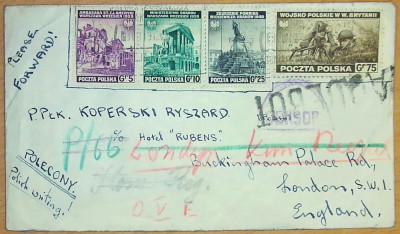 PLEASE
FORWARD!
AMBASADA ST. ZJ. AM. PÓŁN.
WARSZAWA WRZESIEŃ 1939
POCZTA POLSKA Gr5
MINISTERSTWO SKARBU
WARSZAWA WRZESIEŃ 1939
POCZTA POLSKA Gr10
ZBURZENIE POMNIKA
MICKIEWICZA KRAKÓW 1940
POCZTA POLSKA Gr25
WOJSKO POLSKIE W W. BRYTANII
POCZTA POLSKA Gr75
PPŁK. KOPERSKI RYSZARD
c/o Hotel "RUBENS"
P/66 London
Buckingham Palace Rd,
London, S.W.1.
England.
POLECONY.
Polish writing!